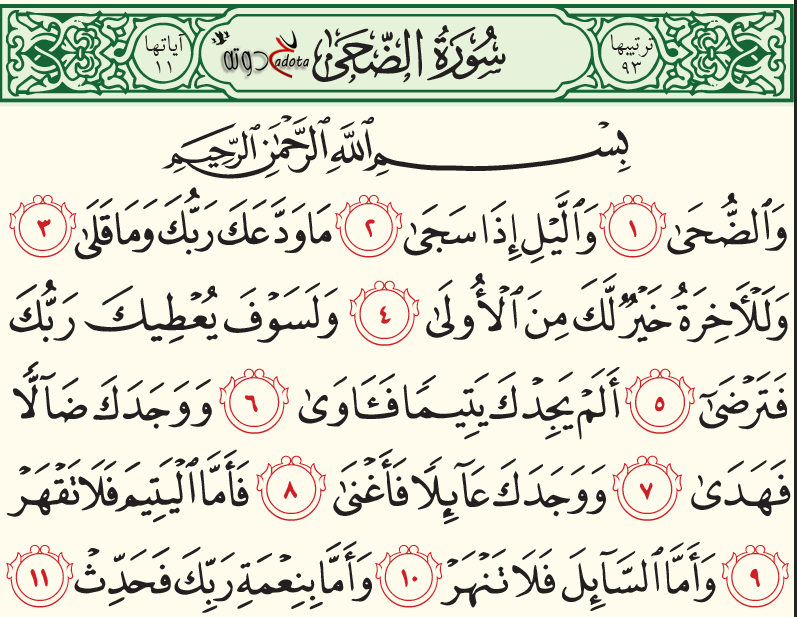 ترتيبها ٩٣ سُورَةُ الضُّحَىٰ adota دوته آياتها ١١
بِسْمِ ٱللَّهِ ٱلرَّحْمَٰنِ ٱلرَّحِيمِ
وَٱلضُّحَىٰ ١ وَٱلَّيْلِ إِذَا سَجَىٰ ٢ مَا وَدَّعَكَ رَبُّكَ وَمَا قَلَىٰ ٣
وَلَلْأَخِرَةُ خَيْرٌ لَّكَ مِنَ ٱلْأُولَىٰ ٤ وَلَسَوْفَ يُعْطِيكَ رَبُّكَ
فَتَرْضَىٰٓ ٥ أَلَمْ يَجِدْكَ يَتِيمًا فَـَٔاوَىٰ ٦ وَوَجَدَكَ ضَآلًّا
فَهَدَىٰ ٧ وَوَجَدَكَ عَآئِلًا فَأَغْنَىٰ ٨ فَأَمَّا ٱلْيَتِيمَ فَلَا تَقْهَرْ
٩ وَأَمَّا ٱلسَّآئِلَ فَلَا تَنْهَرْ ١٠ وَأَمَّا بِنِعْمَةِ رَبِّكَ فَحَدِّثْ ١١